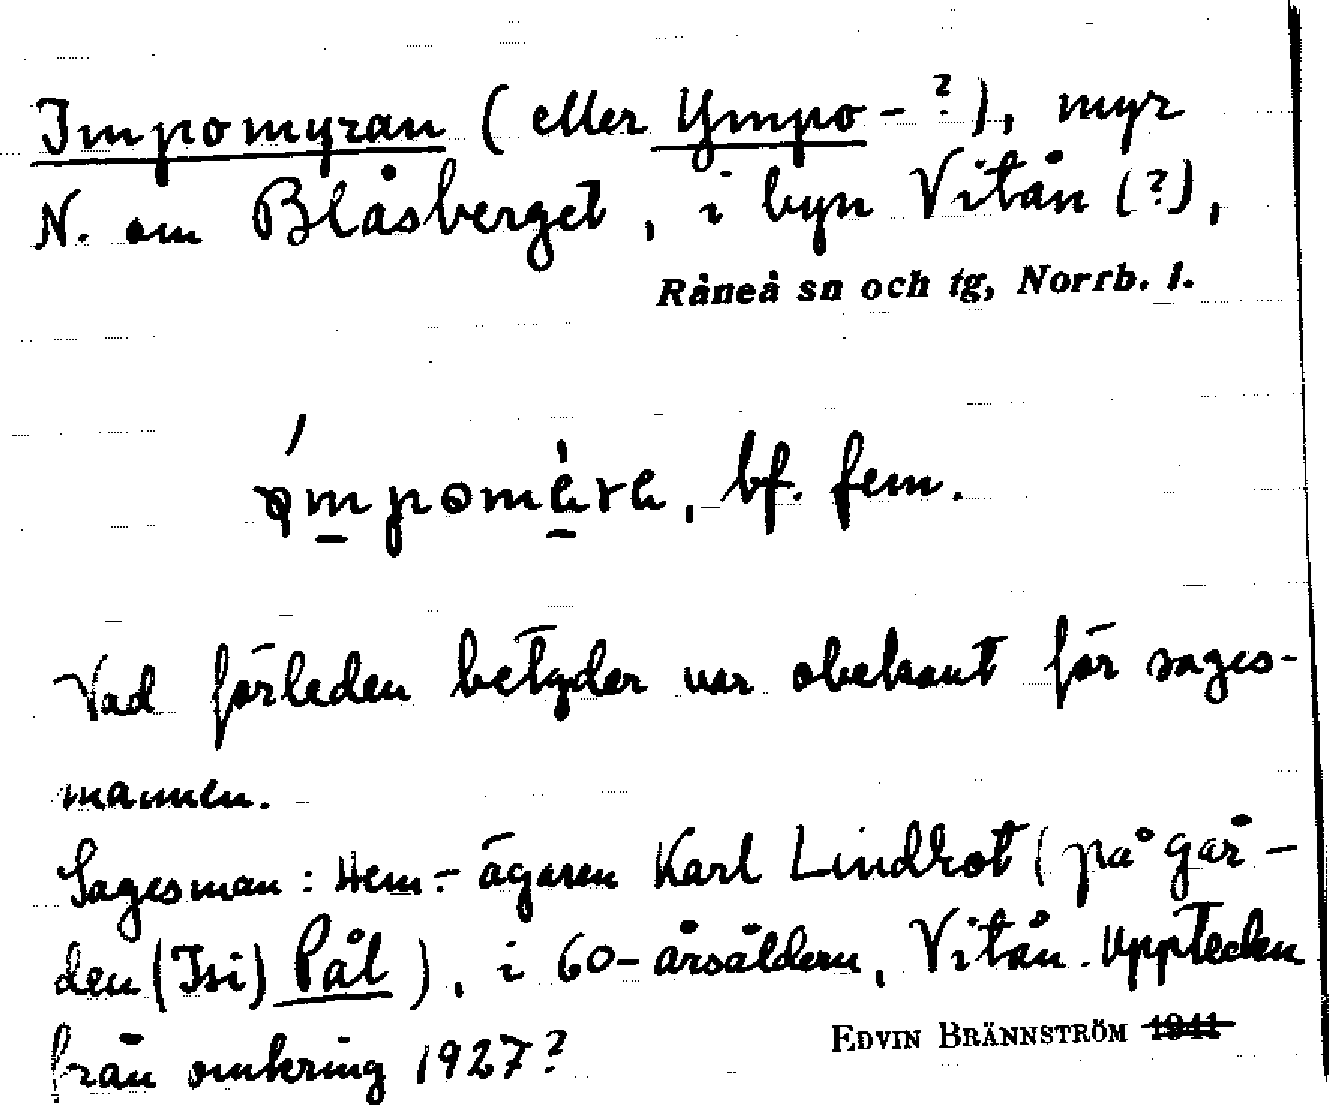 Impomyran (eller Ympo-?), myr
N. om Blåsberget, i byn Vitån (?),
Råneå sn och tg, Norrb. l.
bf. fem.
Vad förleden betyder var obekant för sages-
mannen.
Sagesman: Hem.-ägaren Karl Lindbot (på går-
den (Isi) Pål), i 60-årsåldern, Vitån. Uppteckn
från omkring 1927?
EDVIN BRÄNNSTRÖM 1941